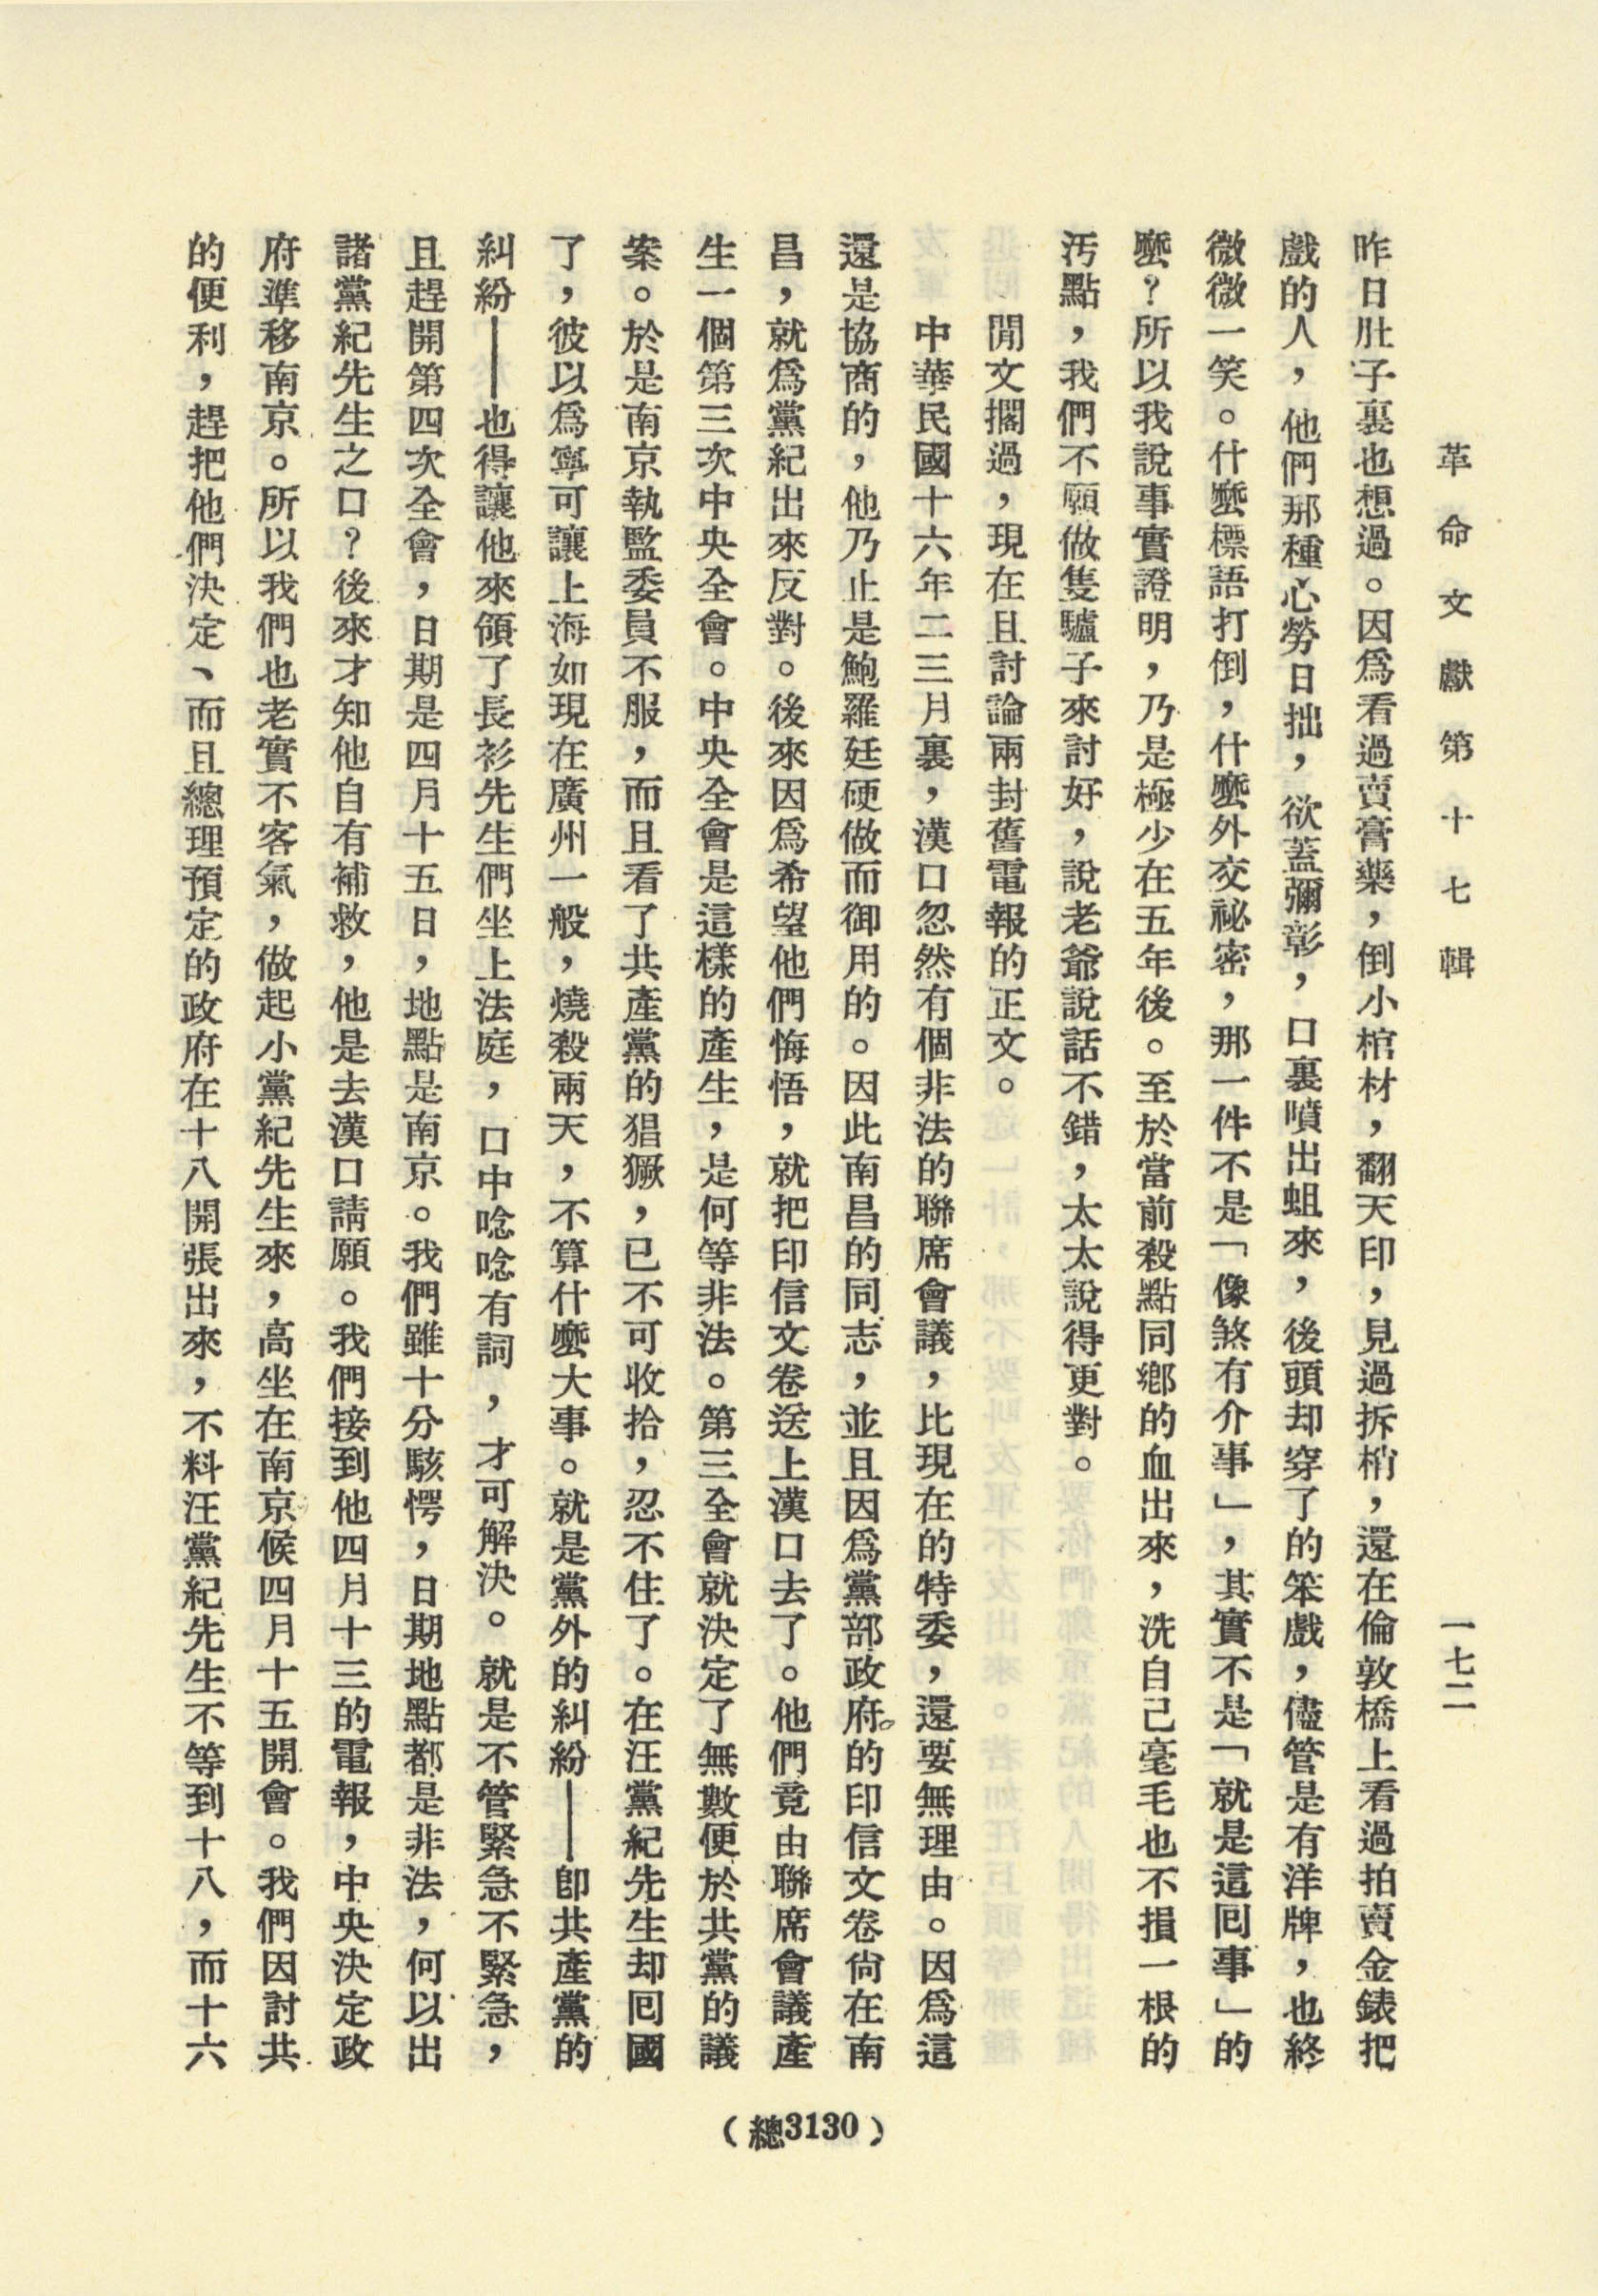 革命文獻第十七輯
一七二
昨日肚子裏也想過。因爲看過賣膏藥，倒小棺材，翻天印，見過拆梢，還在倫敦橋上看過拍賣金錶把
戲的人，他們那種心勞日拙，欲蓋彌彰，口裏噴出蛆來，後頭却穿了的笨戲，儘管是有洋牌，也終
微微一笑。什麼標語打倒，什麼外交祕密，那一件不是「像煞有介事」，其實不是「就是這囘事」的
麼？所以我說事實證明，乃是極少在五年後。至於當前殺點同鄉的血出來，洗自己毫毛也不損一根的
汚點，我們不願做隻驢子來討好，說老爺說話不錯，太太說得更對。
閒文擱過，現在且討論兩封舊電報的正文。
中華民國十六年二三月裏，漢口忽然有個非法的聯席會議，比現在的特委，還要無理由。因爲這
還是協商的，他乃止是鮑羅廷硬做而御用的。因此南昌的同志，並且因爲黨部政府的印信文卷尙在南
昌，就爲黨紀出來反對。後來因爲希望他們悔悟，就把印信文卷送上漢口去了。他們竟由聯席會議產
生一個第三次中央全會。中央全會是這樣的產生，是何等非法。第三全會就決定了無數便於共黨的議
案。於是南京執監委員不服，而且看了共產黨的猖獗，已不可收拾，忍不住了。在汪黨紀先生却囘國
了，彼以爲寧可讓上海如現在廣州一般，燒殺兩天，不算什麼大事。就是黨外的糾紛——卽共產黨的
糾紛——也得讓他來領了長衫先生們坐上法庭，口中唸唸有詞，才可解決。就是不管緊急不緊急，
且趕開第四次全會，日期是四月十五日，地點是南京。我們雖十分駭愕，日期地點都是非法，何以出
諸黨紀先生之口？後來才知他自有補救，他是去漢口請願。我們接到他四月十三的電報，中央決定政
府準移南京。所以我們也老實不客氣，做起小黨紀先生來，高坐在南京候四月十五開會。我們因討共
的便利，趕把他們決定、而且總理預定的政府在十八開張出來，不料汪黨紀先生不等到十八，而十六
（總3130）